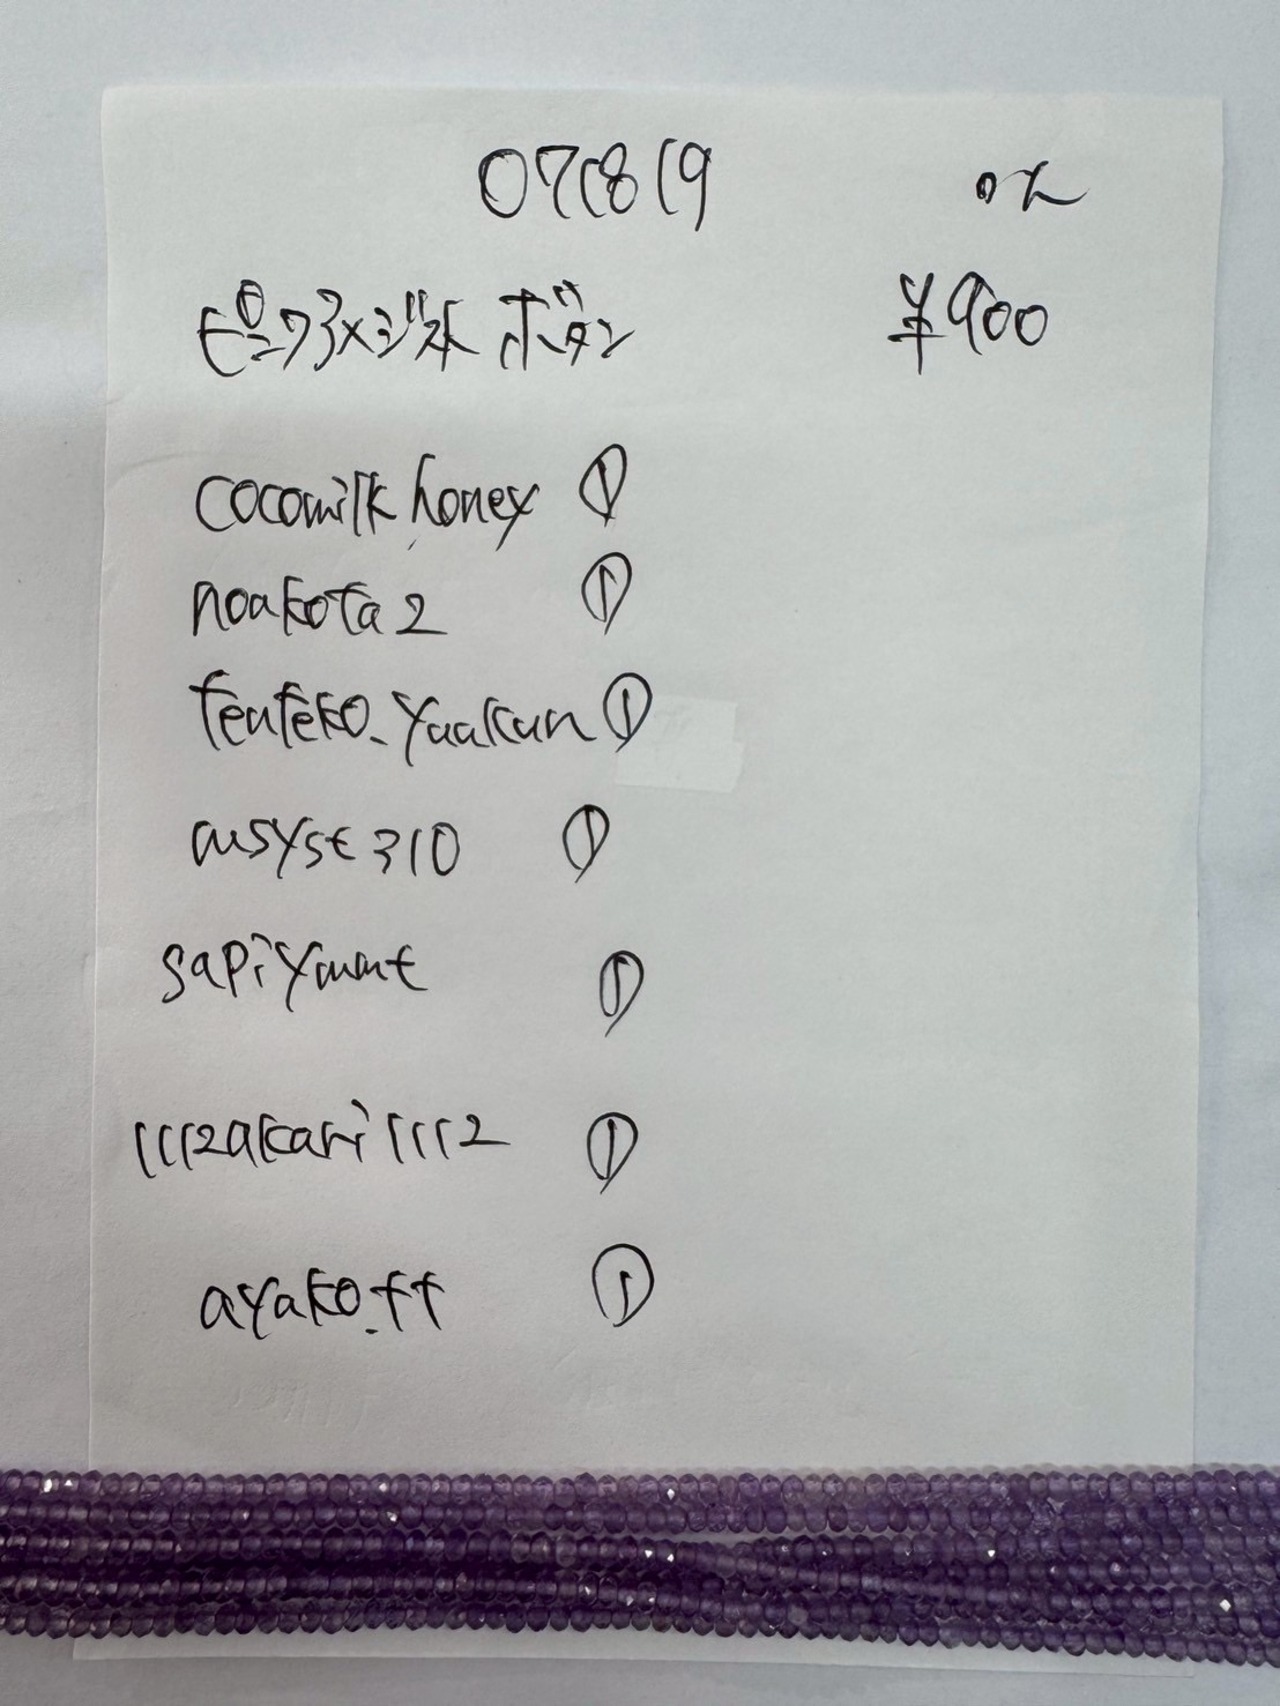 071819 OK
ピンクアメジスト ボタン ¥900
cocomilkhoney ①
noakota2 ①
tenteko_yaakun ①
ausyst310 ①
①
1112akari1112 ①
ayako.tt ①